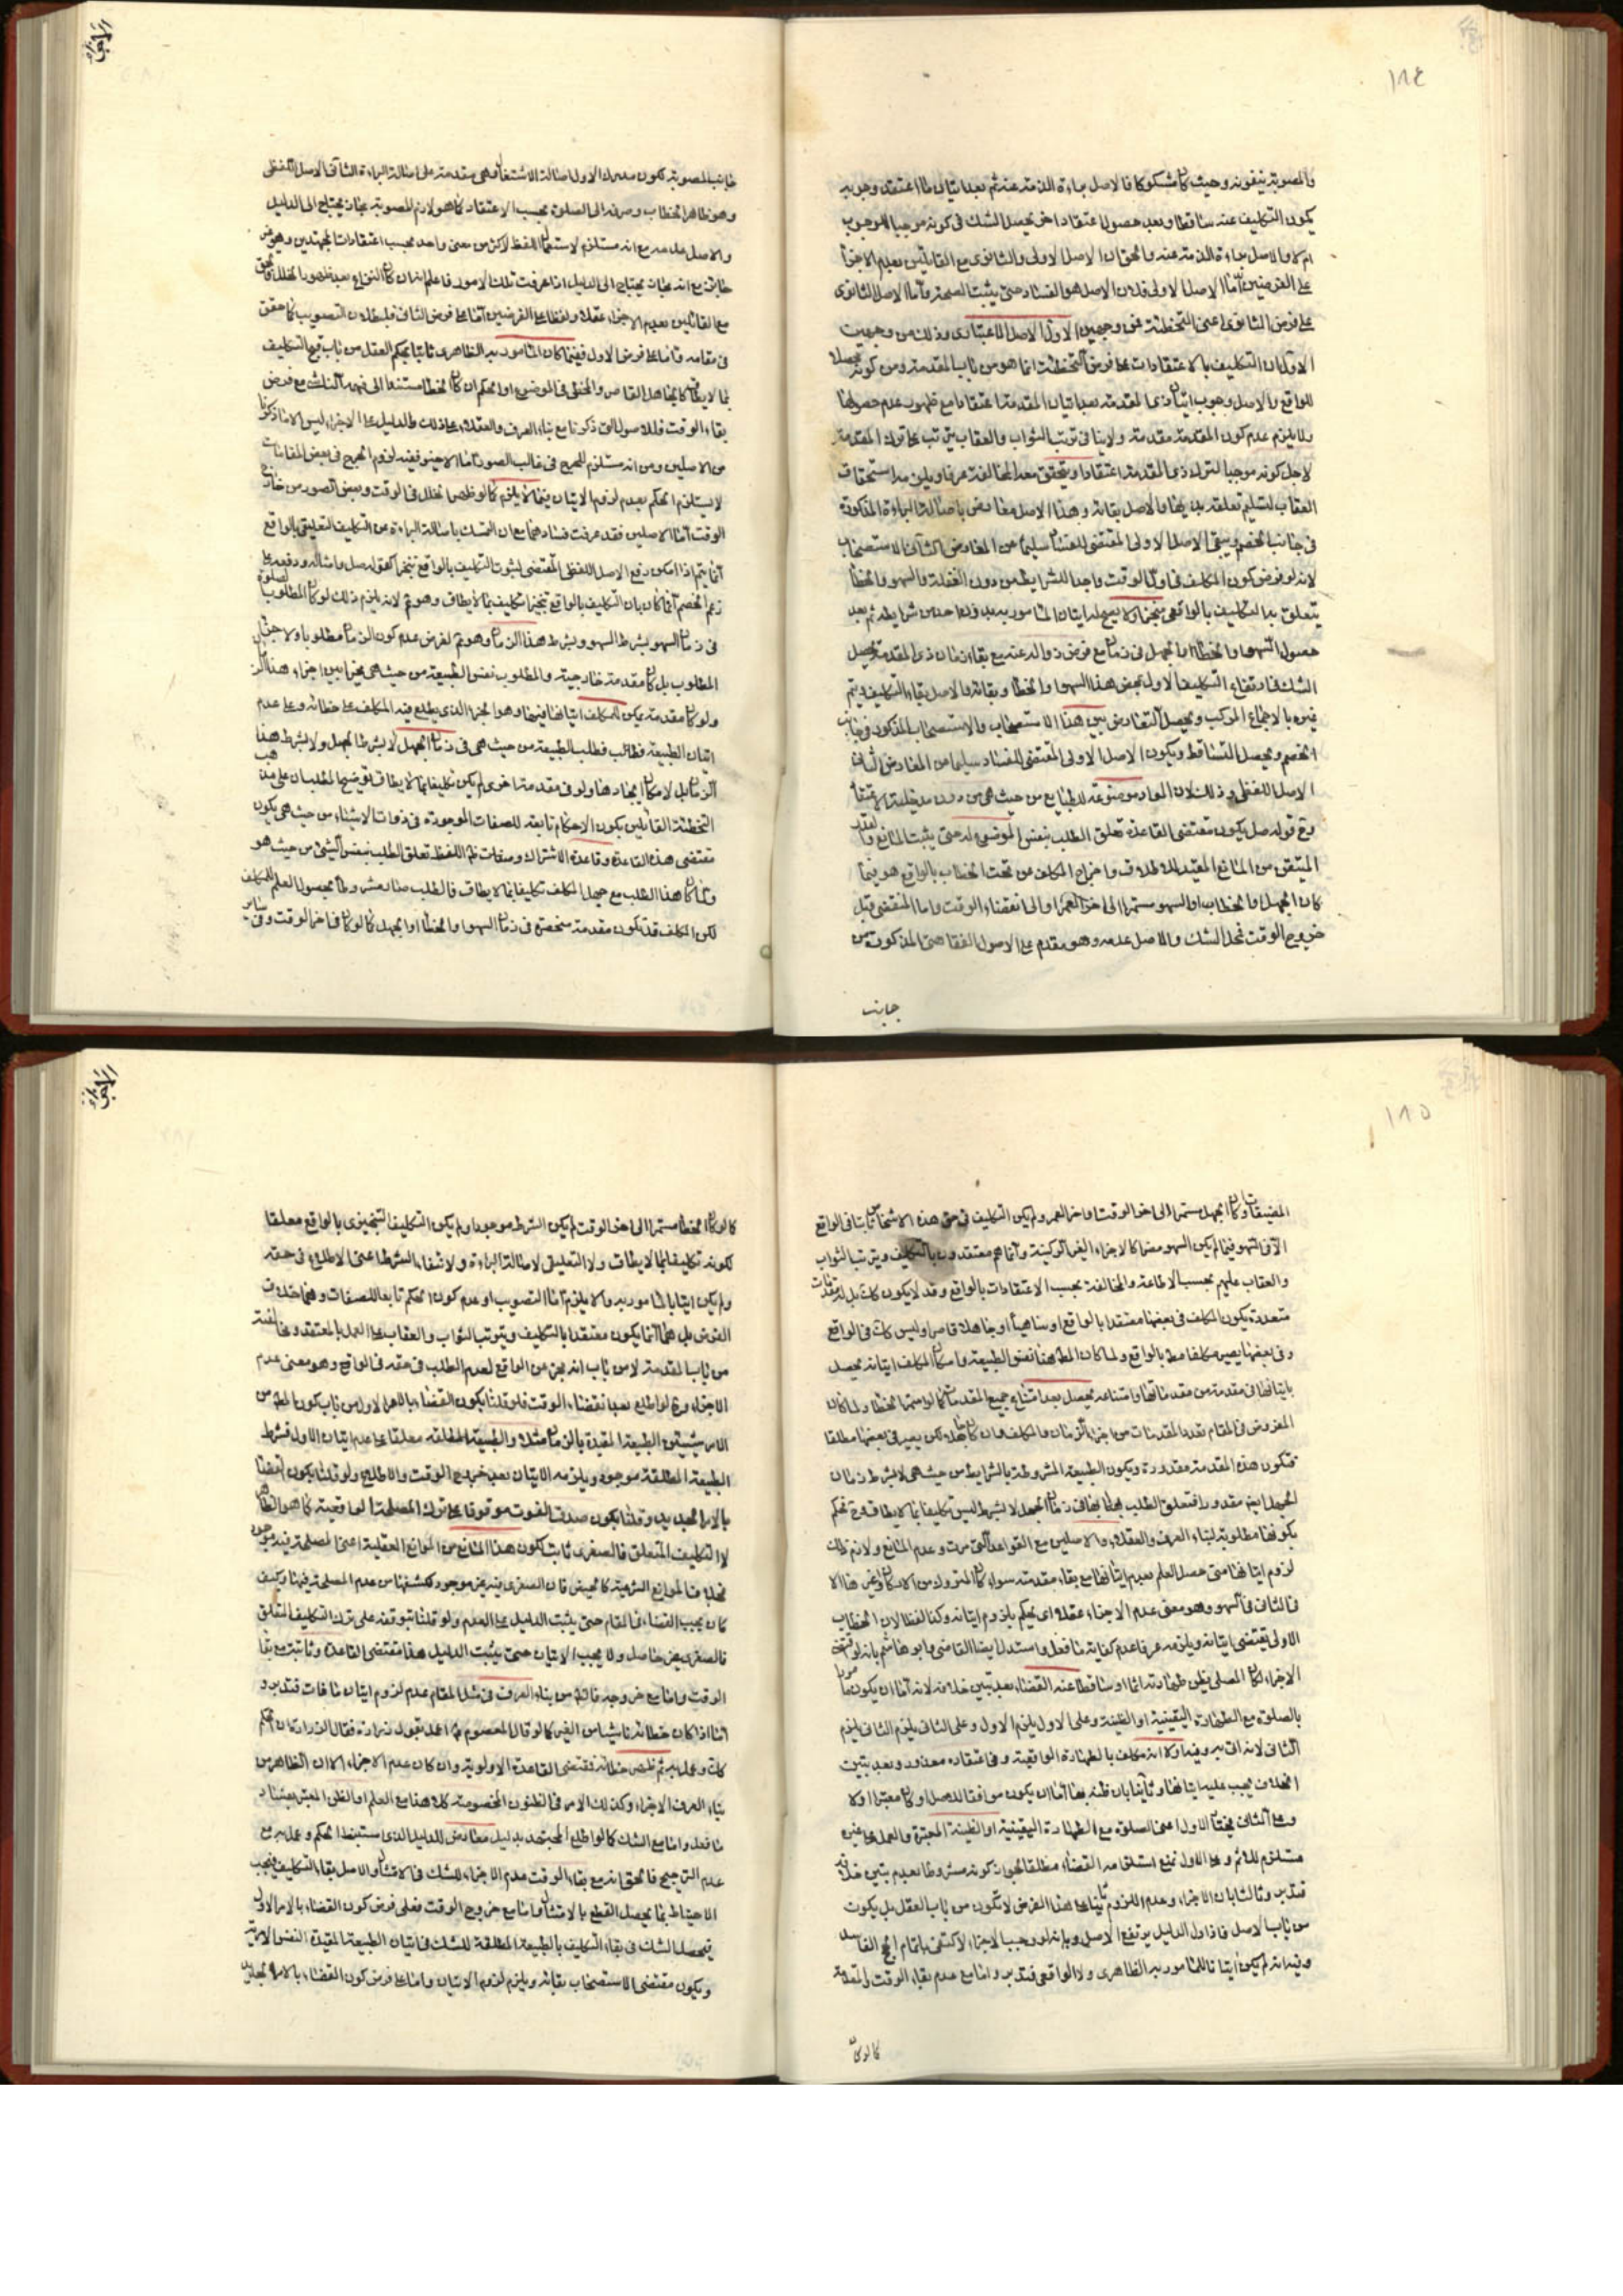 ١٨٤
والمصوبة ينفونه وحيث كان مشكوكا فالاصل براءة الذمة عنه ثم بعد اتيان ما اعتقد وجوبه
يكون التكليف عنه ساقطا وبعد حصول اعتقاد اخر يحصل الشك في كونه موجبا للوجوب
ام لا والاصل براءة الذمة عنه والحق ان الاصل الاولى والثانوى مع القائلين بعدم الاجزاء
على الفرضين اما الاصل الاولى فلان الاصل هو الفساد حتى يثبت الصحة واما الاصل الثانوى
على فرض الثانوى اعنى التخطئة فمن وجهين الاول الاصل الاعتبارى وذلك من وجهين
الاول ان التكليف بالاعتقادات على فرض التخطئة انما هو من باب المقدمة ومن كونه محصلا
للواقع والاصل وجوب اتيان ذى المقدمة بعد اتيان المقدمة اعتقادا مع ظهور عدم حصولها
ولا يلزم عدم كون المقدمة مقدمة ولا ينافى ترتب الثواب والعقاب يترتب على ترك المقدمة
لاجل كونه موجبا لترك ذى المقدمة اعتقادا ويتحقق معه المخالفة عرفا ويلزمه استحقاق
العقاب لتسليم تعلقه بها والاصل بقائه وهذا الاصل معارض باصالة البراءة المذكورة
في جانب الخصم ويبقى الاصل الاولى المقتضى للفساد سليما عن المعارض الثانى الاستصحاب
لانه لو فرض كون المكلف في اول الوقت واجدا للشرايط من دون الغفلة والسهو والخطأ
يتعلق به التكليف بالواقعى منجزا ولا يصح له اتيان المأمور به بعد فقد احد من شرايطه ثم بعد
حصول السهو او الخطأ او الجهل في زمان مع فرض زواله عنه مع بقاء زمان ذى المقدمة يحصل
الشك في ارتفاع التكليف الاول بمحض هذا السهو والخطأ وبقائه والاصل بقاء التكليف ويتم
غيره بالاجماع المركب ويحصل التعارض بين هذا الاستصحاب والاستصحاب المذكور في جانب
الخصم ويحصل التساقط ويكون الاصل الاولى المقتضى للفساد سليما من المعارض الثانى
الاصل اللفظى وذلك لان المواد موضوعة للطبايع من حيث هى من دون مدخلية الاعتقاد
وفى قوله صل يكون مقتضى القاعدة تعلق الطلب بنفس الموضوع له حتى يثبت المانع والقدر
المتيقن من المانع المقيد للاطلاق واخراج المكلف من تحت الخطاب بالواقع هو فيما
كان الجهل والخطاء او السهو مستمرا الى اخر العمر او الى انقضاء الوقت واما المنقضى قبل
خروج الوقت فمحل الشك والاصل عدمه وهو مقدم على الاصول الفقاهتى المذكورة من
جانب
الاجزاء
جانب المصوبة لكون مدرك الاول اصالة الاشتغال فهى مقدمة على اصالة البراءة الثانى الاصل اللفظى
وهو ظاهر الخطاب وصرفه الى الصلوة بحسب الاعتقاد كما هو لازم المصوبة مجاز يحتاج الى الدليل
والاصل عدمه مع انه مستلزم لاستعمال اللفظ لاكثر من معنى واحد بحسب اعتقادات المجتهدين وهو غير
جائز مع انه مجاز يحتاج الى الدليل اذا عرفت تلك الامور فاعلم انه ان كان النزاع بعد ظهور الخلل فالحق
مع القائلين بعدم الاجزاء عقلا ولفظا على الفرضين اما على فرض الثانى فلبطلان التصويب كما حقق
في مقامه واما على فرض الاول ففيما كان المأمور به الظاهرى ثابتا بحكم العقل من باب قبح التكليف
بما لا يطاق كالجاهل القاصر والمخطئ في الموضوع او الحكم ان كان الخطاء مستندا الى فهمه الثالث مع فرض
بقاء الوقت فللاصول التى ذكرنا مع بناء العرف والعقلاء على ذلك والدليل على الاجزاء ليس الا ما ذكرنا
من الاصلين ومن انه مستلزم للحرج في غالب الصور اما الاخير ففيه لزوم الحرج في بعض المقامات
لا يستلزم الحكم بعدم لزوم الاتيان فيما لا يلزم كما لو ظهر الخلل في الوقت وبعض الصور من خارج
الوقت اما الاصلين فقد عرفت فسادهما مع ان التمسك باصالة البراءة من التكليف التعليقى بالواقع
انما يتم اذا امكن دفع الاصل اللفظى المقتضى لثبوت التكليف بالواقع تنجيزا كقوله صل وامثاله ودفعه على
زعم الخصم انما كان بان التكليف بالواقع تنجيزا تكليف بما لا يطاق وهو م لانه يلزم ذلك لو كان المطلوب الصلوة
في زمان السهو بشرط السهو وبشرط هذا الزمان وهو م لفرض عدم كون الزمان مطلوبا ولا جزء
المطلوب بل كان مقدمة خارجية والمطلوب نفس الطبيعة من حيث هى مخيرا بين اجزاء هذا الزمان
ولو كان مقدمة يمكن للمكلف اتيانها فيها وهو الجزء الذى يطلع فيه المكلف على خطائه وعلى عدم
اتيان الطبيعة فطلب الطبيعة من حيث هى في زمان الجهل لا بشرط الجهل ولا بشرط هذا
الزمان بل لامكان ايجادها ولو في مقدمة اخرى لم يكن تكليفا بما لا يطاق توضيح المطلب ان على مذهب
التخطئة القائلين بكون الاحكام تابعة للصفات الموجودة في ذوات الاشياء من حيث هى يكون
مقتضى هذه القاعدة وقاعدة الاشتراك وصفات تم اللفظ تعلق الطلب بنفس الشئ من حيث هو
ولما كان هذا الطلب مع جهل المكلف تكليفا بما لا يطاق فالطلب صار مشروطا بحصول العلم للمكلف
لكن المكلف قد يكون مقدمة منحصرة في زمان السهو او الخطأ او الجهل كما لو كان في اخر الوقت وفى ساير
١٨٥
المضيقات او كان الجهل مستمرا الى اخر الوقت او اخر العمر ولم يكن التكليف في حق هذه الاشخاص ثابتا في الواقع
الا في السهو فيما لم يكن السهو مضرا كالاجزاء الغير الركنية وانما هم معتقدون بالتكليف ويترتب الثواب
والعقاب عليهم بحسب الاطاعة والمخالفة بحسب الاعتقادات بالواقع وقد لا يكون كك بل له مقدمات
متعددة يكون المكلف في بعضها معتقدا بالواقع او ساهيا او جاهلا قاصرا وليس كك في الواقع
وفى بعضها يصير مكلفا مط بالواقع ولما كان المط هنا نفس الطبيعة وامكان المكلف اتيانه يحصل
باتيانها في مقدمة من مقدماتها وامتناعه يحصل بعد امتناع جميع المقدمات كما لو استمر الخطاء ولما كان
المفروض في المقام تعدد المقدمات من اجزاء الزمان والمكلف وان كان جاهلا لكن يصير في بعضها مطلقا
فتكون هذه المقدمة مقدورة ويكون الطبيعة المشروطة بالشرايط من حيث هى لا بشرط زمان
الجهل ايضا مقدورا فتعلق الطلب بها لايجادها في زمان الجهل لا بشرط ليس تكليفا بما لا يطاق فح نحكم
بكونها مطلوبة لبناء العرف والعقلاء والاصلين مع القواعد التى مرت وعدم المانع ولازم ذلك
لزوم اتيانها متى حصل العلم بعدم اتيانها مع بقاء مقدمته سواء كان المتروك من الاركان او غيرها الا
فالثانى في السهو وهو معنى عدم الاجزاء عقلا اى يحكم بلزوم اتيانه وكذا لفظا لان الخطاب
الاولى يقتضى اتيانه ويلزمه عرفا عدم كفاية ما فعل واستدل ايضا القاضى وابو هاشم بانه لو اقتضى
الاجزاء لكان المصلى بظن طهارته اثما او ساقطا عنه القضاء بعد تبين خلافه لانه اما ان يكون مأمورا
بالصلوة مع الطهارة اليقينية او الظنية وعلى الاول يلزم الاول وعلى الثانى يلزم الثانى
الثانى لانه اتى به وفيه اولا انه مكلف بالطهارة الواقعية وفى اعتقاده معذور وبعد تبين
الخلاف يجب عليه اتيانها وثانيا بان ظنه بها اما ان يكون موافقا للاصل او كان معتبرا او لا
وعلى الثانى يختار الاول اعنى الصلوة مع الطهارة اليقينية او الظنية المعتبرة والعمل على غيره
مستلزم للاثم وعلى الاول نمنع استلزامه القضاء مطلقا لجواز كونه مشروطا بعدم تبين خلافه
فتدبر وثالثا بان الاجزاء وعدم اللزوم بناء على هذا الفرض لا تكون من باب العقل بل يكون
من باب الاصل فاذا ول الدليل يرتفع الاصل وبانه لو وجب الاجزاء لاكتفى باتمام الحج الفاسد
وفيه انه لم يكن اتيانا للمأمور به الظاهرى ولا الواقعى فتدبر واما مع عدم بقاء الوقت والمقدمة
كما لو كان
الاجزاء
كما لو كان الخطأ مستمرا الى اخر الوقت لم يكن الشرط موجودا ولم يكن التكليف التنجيزى بالواقع معلقا
لكونه تكليفا بما لا يطاق ولا التعليق لاصالة البراءة ولانتفاء الشرط اعنى الاطلاع في حقه
ولم يكن اتيانا بالمأمور به والا يلزم اما التصويب او عدم كون الحكم تابعا للصفات وهما خلاف
الفرض بل هما انما يكون معتقدا بالتكليف ويترتب الثواب والعقاب على العمل بالمعتقد ومخالفته
من باب المقدمة لا من باب انه جزء من الواقع لعدم الطلب في حقه في الواقع وهو معنى عدم
الاجزاء وح لو اطلع بعد انقضاء الوقت فلو قلنا بكون القضاء بالامر الاول من باب كون المط من
الامر شيئين الطبيعة المقيدة بالزمان مثلا والطبيعة المطلقة معلقا على عدم اتيان الاول فشرط
الطبيعة المطلقة موجود ويلزمه الاتيان بعد خروج الوقت والاطلاع ولو قلنا بكون القضاء
بالامر الجديد وقلنا بكون صدق الفوت موقوفا على ترك المصلحة الواقعية كما هو الظاهر
لا التكليف المتعلق فالصغرى ثابت لكون هذا المانع من الموانع العقلية اعنى المصلحة فيه موجود
بخلاف الموانع الشرعية كالحيض فان الصغرى فيه غير موجود لكشفها من عدم المصلحة فيها وكيف
كان يجب القضاء في المقام حتى يثبت الدليل على العدم ولو قلنا بتوقفه على ترك التكليف المتعلق
فالصغرى غير حاصل ولا يجب الاتيان حتى يثبت الدليل هذا مقتضى القاعدة وثابت مع بقاء
الوقت واما مع خروجه فالظ من بناء العرف في مثل المقام عدم لزوم اتيان ما فات فتدبر و
اما اذا كان خطائه ناشيا من الغير كما لو قال المعصوم ع اعمل بقول زرارة فقال الزرارة ان الحكم
كك وعمل به ثم ظهر خطائه فمقتضى القاعدة الاولوية وان كان عدم الاجزاء الا ان الظاهر من
بناء العرف الاجزاء وكذلك الامر في الظنون المخصوصة كل هذا مع العلم او الظن المعتبر بفساد
ما فعل واما مع الشك كما لو اطلع المجتهد بدليل معارض للدليل الذى استنبط الحكم وعمل به مع
عدم الترجيح فالحق انه مع بقاء الوقت عدم الاجزاء للشك في الامتثال والاصل بقاء التكليف فيجب
الاحتياط بما يحصل القطع بالامتثال واما مع خروج الوقت فعلى فرض كون القضاء بالامر الاول
فيحصل الشك في بقاء التكليف بالطبيعة المطلقة للشك في اتيان الطبيعة المقيدة النفس الامرية
ويكون مقتضى الاستصحاب بقائه ويلزم لزوم الاتيان واما على فرض كون القضاء بالامر الجديد